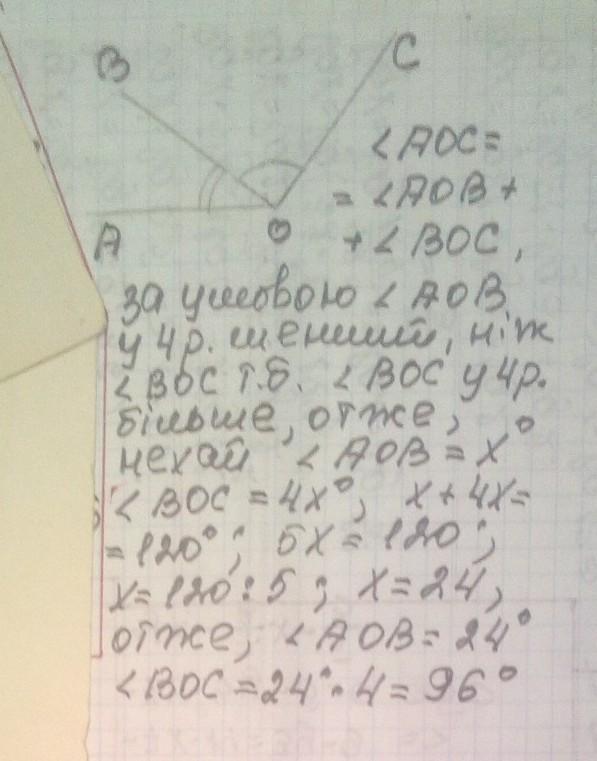 B
C
A
O
∠AOC=
= ∠AOB +
+ ∠BOC,
за умовою ∠AOB
у 4р. менший, ніж
∠BOC т.б. ∠BOC у 4р.
більше, отже,
нехай ∠AOB = x°
∠BOC = 4x°; x + 4x =
= 120°; 5x = 120;
x = 120 : 5; x = 24,
отже, ∠AOB = 24°
∠BOC = 24° · 4 = 96°